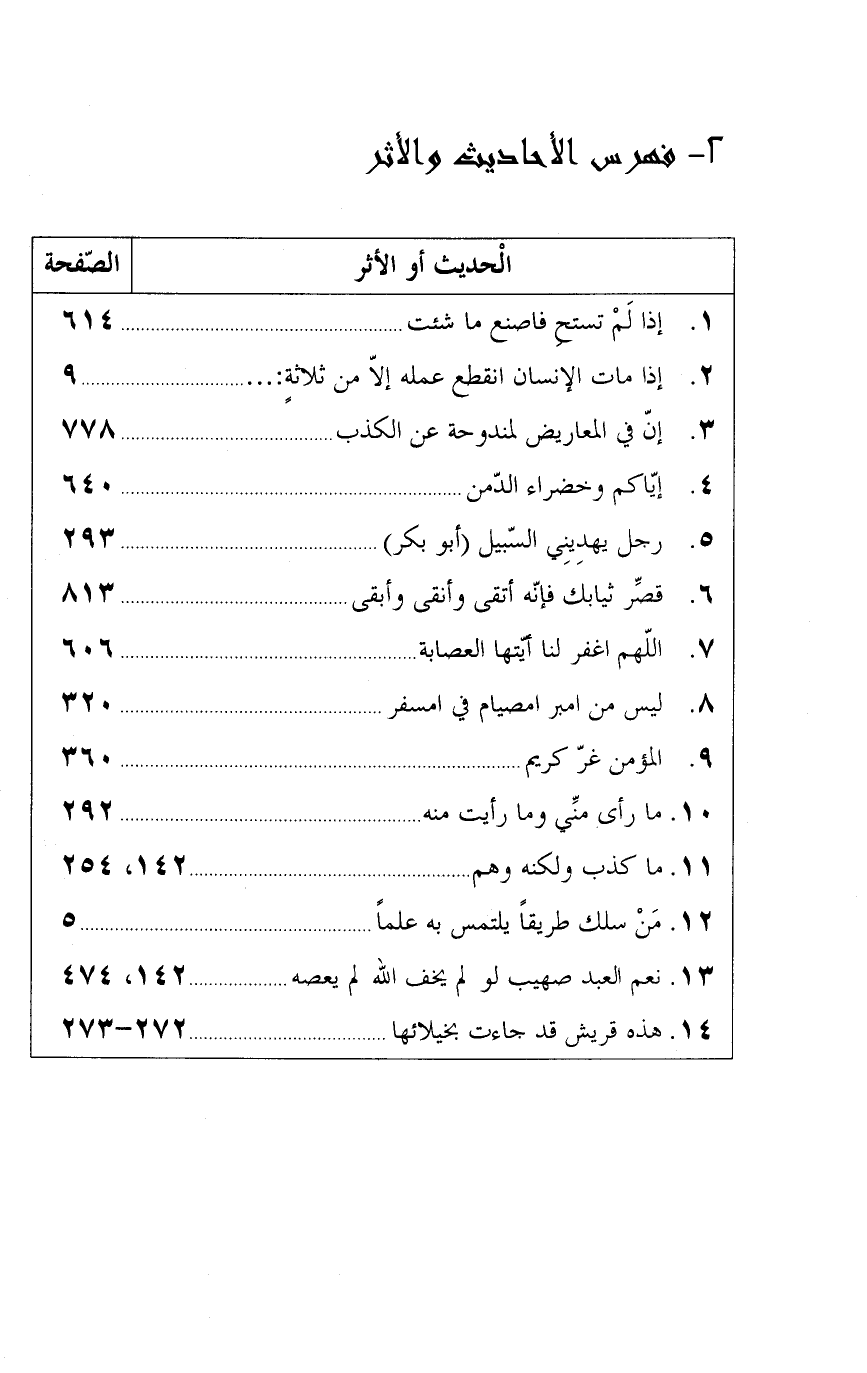 ٢- فهرس الأحاديث والأثر
الْحديث أو الأثر الصّفحة
١. إذا لَمْ تستحِ فاصنع ما شئت ٦١٤
٢. إذا مات الإنسان انقطع عمله إلاّ من ثلاثةٍ:... ٩
٣. إنّ في المعاريض لمندوحة عن الكذب ٧٧٨
٤. إيّاكم وخضراء الدّمن ٦٤٠
٥. رجل يهدِينِي السّبيل (أبو بكر) ٢٩٣
٦. قصِّر ثيابك فإنّه أتقى وأنقى وأبقى ٨١٣
٧. اللّهم اغفر لنا أيّتها العصابة ٦٠٦
٨. ليس من امبر امصيام في امسفر ٣٢٠
٩. المؤمن غرّ كريم ٣٦٠
١٠. ما رأى منِّي وما رأيت منه ٢٩٢
١١. ما كذب ولكنه وهم ١٤٢، ٢٥٤
١٢. مَنْ سلك طريقاً يلتمس به علماً ٥
١٣. نعم العبد صهيب لو لم يخف الله لم يعصه ١٤٢، ٤٧٤
١٤. هذه قريش قد جاءت بخيلائها ٢٧٢–٢٧٣